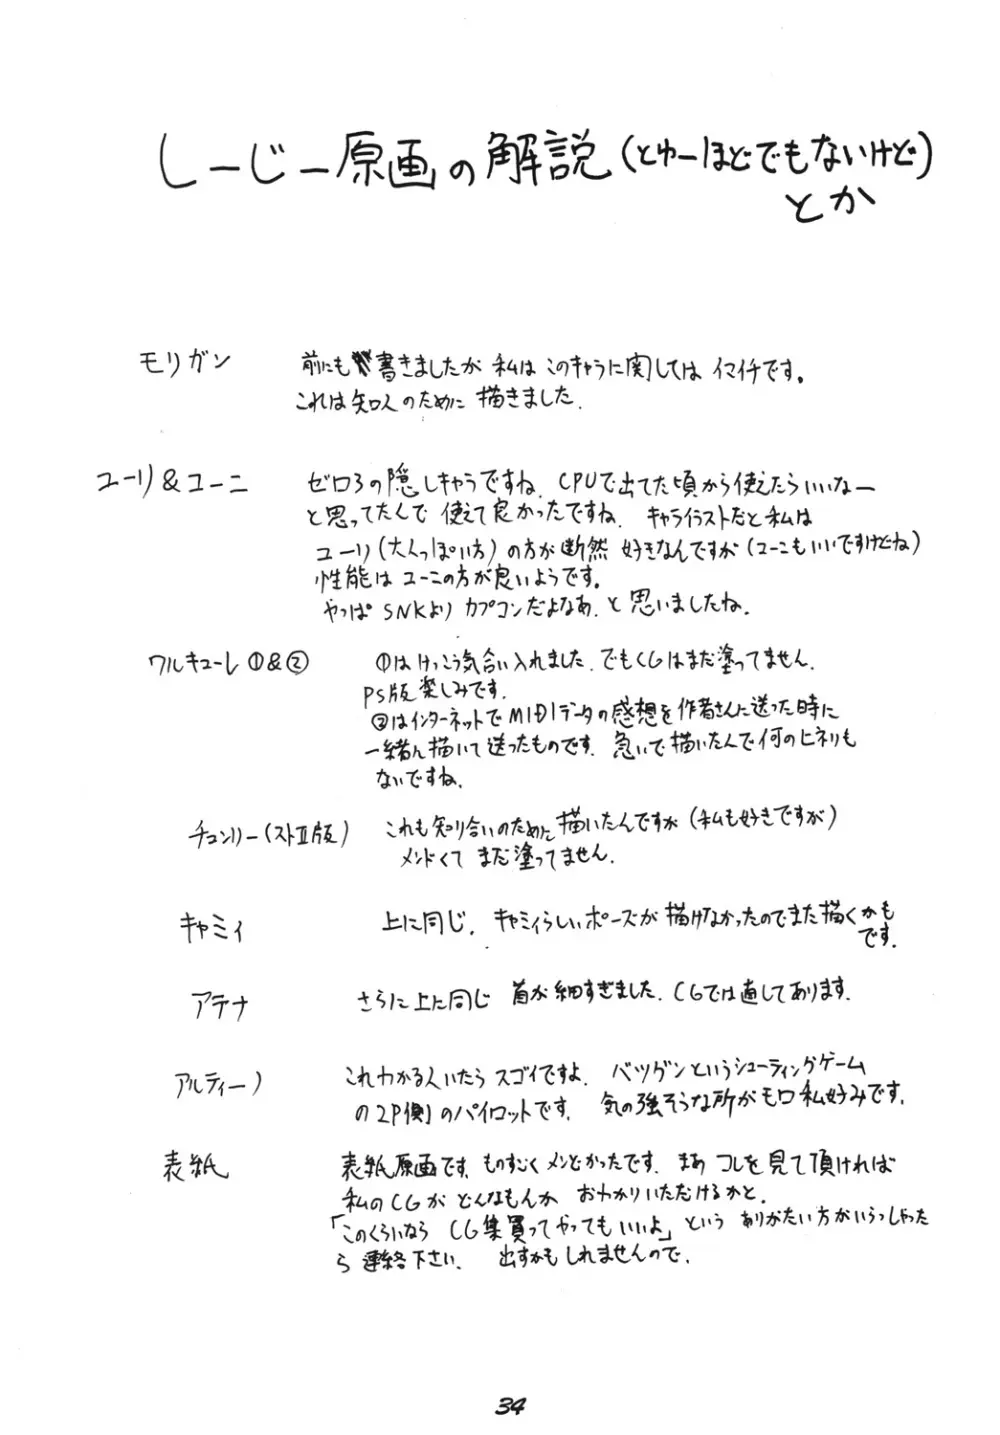 しーじー原画の解説(とゆーほどでもないけど)
とか
モリガン 前にも書きましたが 私は このキャラに関しては イマイチです。
これは知人のために 描きました.
ユーリ&ユーニ ゼロ3の隠しキャラですね. CPUで出てた頃から使えたらいいなー
と思ってたんで 使えて良かったですね. キャライラストだと私は
ユーリ(大人っぽい方)の方が断然 好きなんですが(ユーニもいいですけどね)
性能は ユーニの方が良いようです。
やっぱ SNKより カプコンだよなあ. と 思いましたね.
ワルキューレ①&② ①は けっこう気合い入れました. でもCGはまだ塗ってません.
PS版楽しみです.
②はインターネットでMIDIデータの感想を作者さんに送った時に
一緒に描いて送ったものです. 急いで描いたんで何のヒネリも
ないですね.
チュンリー(ストⅡ版) これも知り合いのために描いたんですが(私も好きですが)
メンドくて まだ塗ってません.
キャミィ 上に同じ. キャミィらしいポーズが 描けなかったのでまた描くかも
です.
アテナ さらに上に同じ 首が細すぎました. CGでは直してあります.
アルティーノ これわかる人いたら スゴイですよ. バツグンというシューティングゲーム
の2P側のパイロットです. 気の強そうな所がモロ私好みです.
表紙 表紙原画です. ものすごくメンどかったです. まあ コレを見て頂ければ
私のCGが どんなもんか おわかりいただけるかと.
「このくらいなら CG集買ってやってもいいよ」という ありがたい方がいらっしゃった
ら 連絡下さい. 出すかもしれませんので.
34